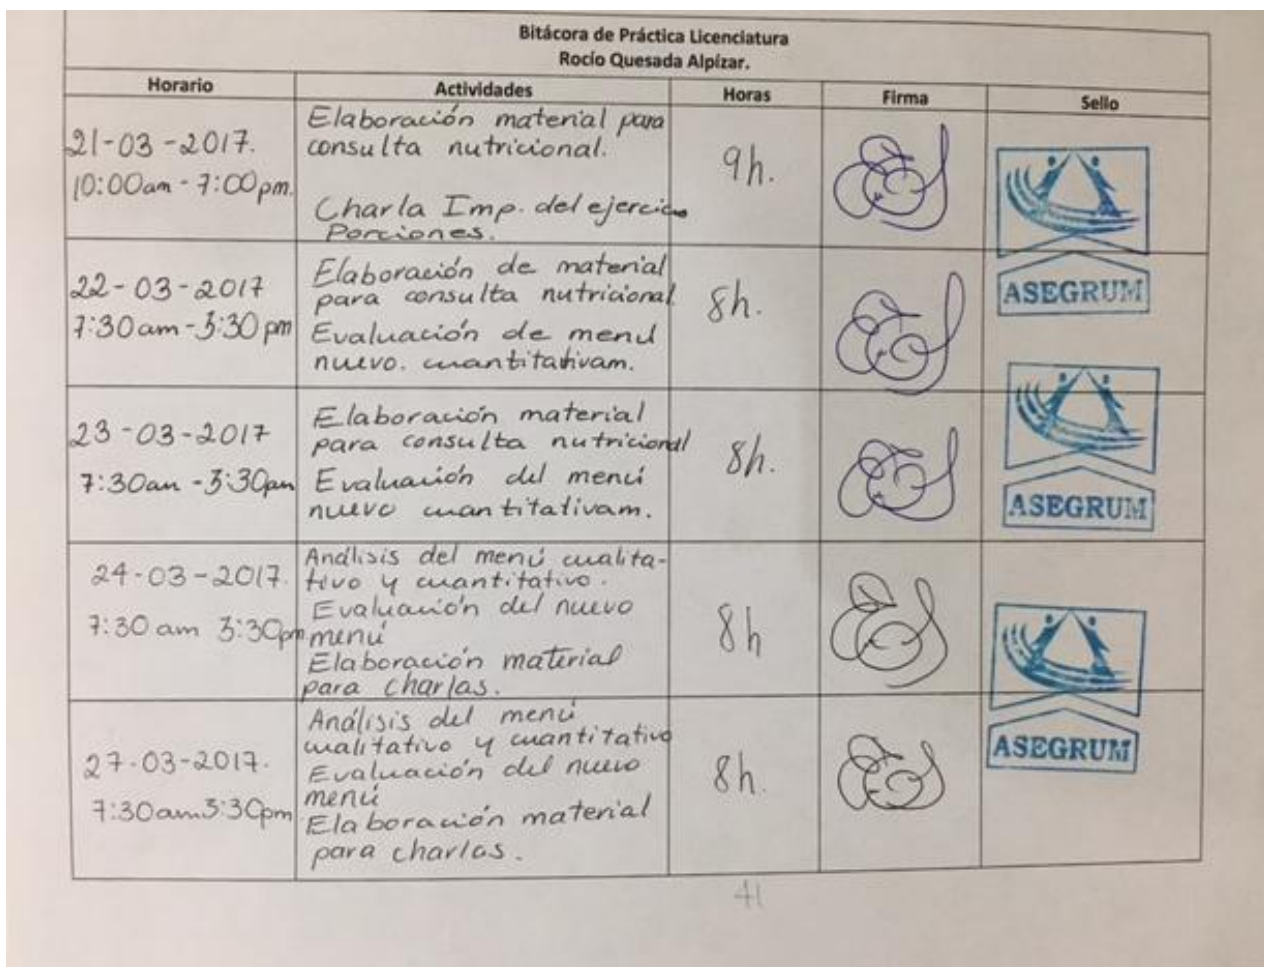 Bitácora de Práctica Licenciatura
Rocío Quesada Alpízar.
Horario Actividades Horas Firma Sello
21-03-2017.
10:00am - 7:00pm.
Elaboración material para
consulta nutricional.
Charla Imp. del ejercicio
Porciones.
9h.
22-03-2017
7:30am - 3:30pm
Elaboración de material
para consulta nutricional
Evaluación de menú
nuevo. cuantitativam.
8h.
ASEGRUM
23-03-2017
7:30am - 3:30pm
Elaboración material
para consulta nutricional
Evaluación del menú
nuevo cuantitativam.
8h.
ASEGRUM
24-03-2017.
7:30 am 3:30pm
Análisis del menú cualita-
tivo y cuantitativo.
Evaluación del nuevo
menú
Elaboración material
para charlas.
8h
27-03-2017.
7:30am 3:30pm
Análisis del menú
cualitativo y cuantitativo
Evaluación del nuevo
menú
Elaboración material
para charlas.
8h.
ASEGRUM
41